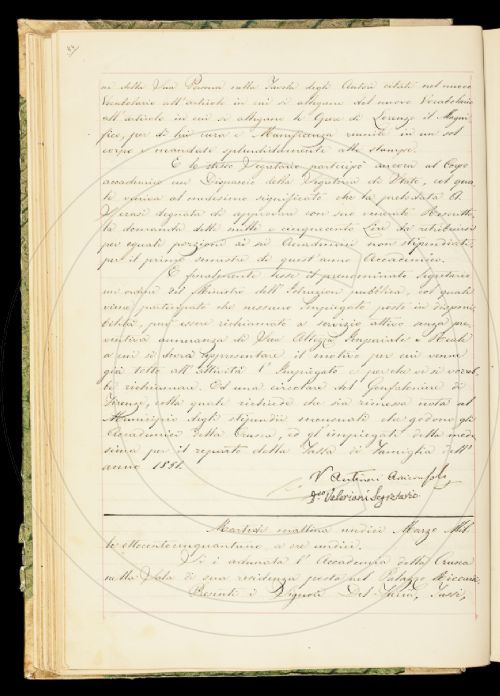 ni della Sua Persona nella Tavola degli Autori citati nel nuovo
Vocabolario all'articolo in cui si allegano del nuovo Vocabolario
all'articolo in cui si allegano le Opere di Lorenzo il Magni-
fico, per di lui cura e Munificenza riunite in un sol
corpo e mandate splendidamente alle stampe.
E lo stesso Segretario partecipò ancora al Corpo
accademico un Dispaccio della Segreteria di Stato, col qua-
le veniva al medesimo significato che la prelodata A.
S. erasi degnata di approvare con suo venerato Rescritto
la domanda delle mille e cinquecento Lire da retribuirsi
per eguali porzioni ai sei Accademici non stipendiati,
per il primo semestre di quest'anno Accademico.
E finalmente lesse il prenominato Segretario
un ordine del Ministro dell'Istruzione pubblica, col quale
viene partecipato che nessuno impiegato posto in disponi-
bilità, può essere richiamato a servizio attivo senza pre-
ventiva annuenza di Sua Altezza Imperiale e Reale
a cui si dovrà rappresentare il motivo per cui venne
già tolto all'attività l'Impiegato e perchè si vorreb-
be richiamare. Ed una circolare del Gonfaloniere di
Firenze, colla quale richiede che sia rimessa nota al
Municipio degli stipendii mensuali che godono gli
Accademici della Crusca, ed gl'impiegati della mede-
sima per il reparto della Tassa di Famiglia dell'
anno 1851.
V Antinori Arciconsolo
Valeriani Segretario
Martedì mattina undici Marzo Mil-
le ottocentocinquantuno, a ore undici.
Si è adunata l'Accademia della Crusca
nella Sala di sua residenza posta nel Palazzo Riccardi.
Presenti i Signori Del Furia, Tassi,